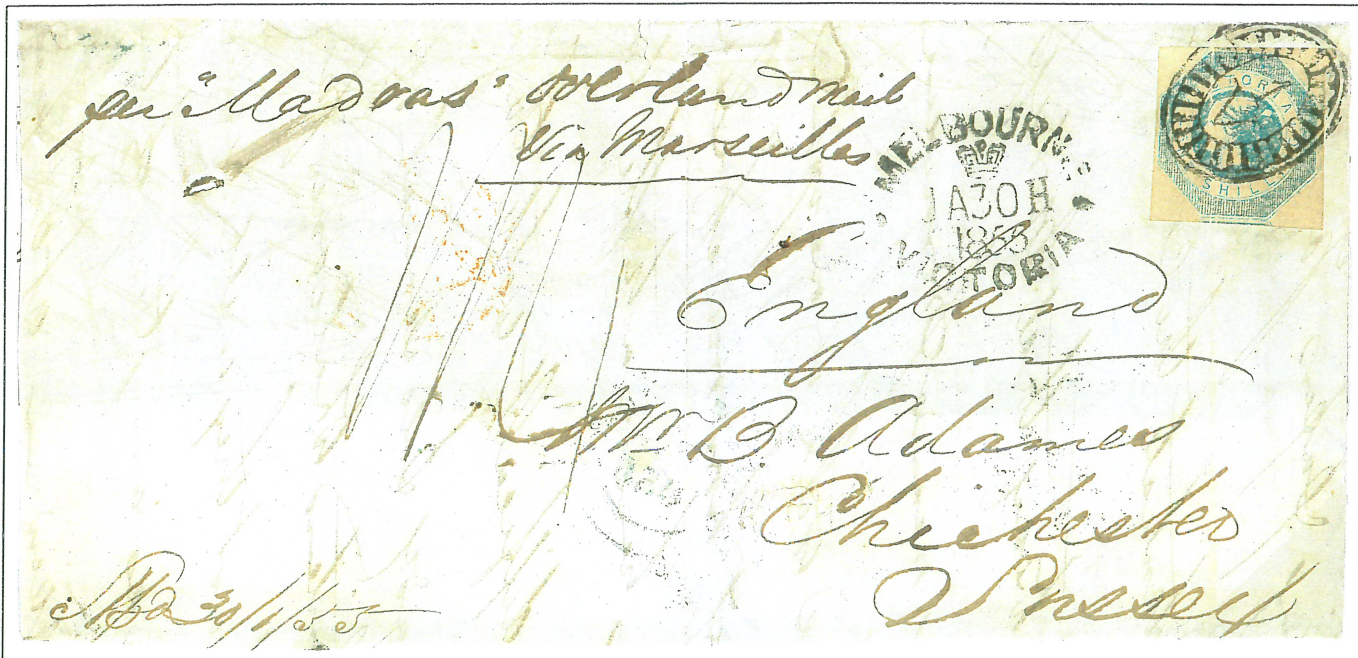 per "Madras" Overland Mail
Via Marseilles
MELBOURNE
JA 30 H
1855
VICTORIA
VICTORIA
SHILL
England
Mr B. Adames
Chichester
Sussex
30/1/55